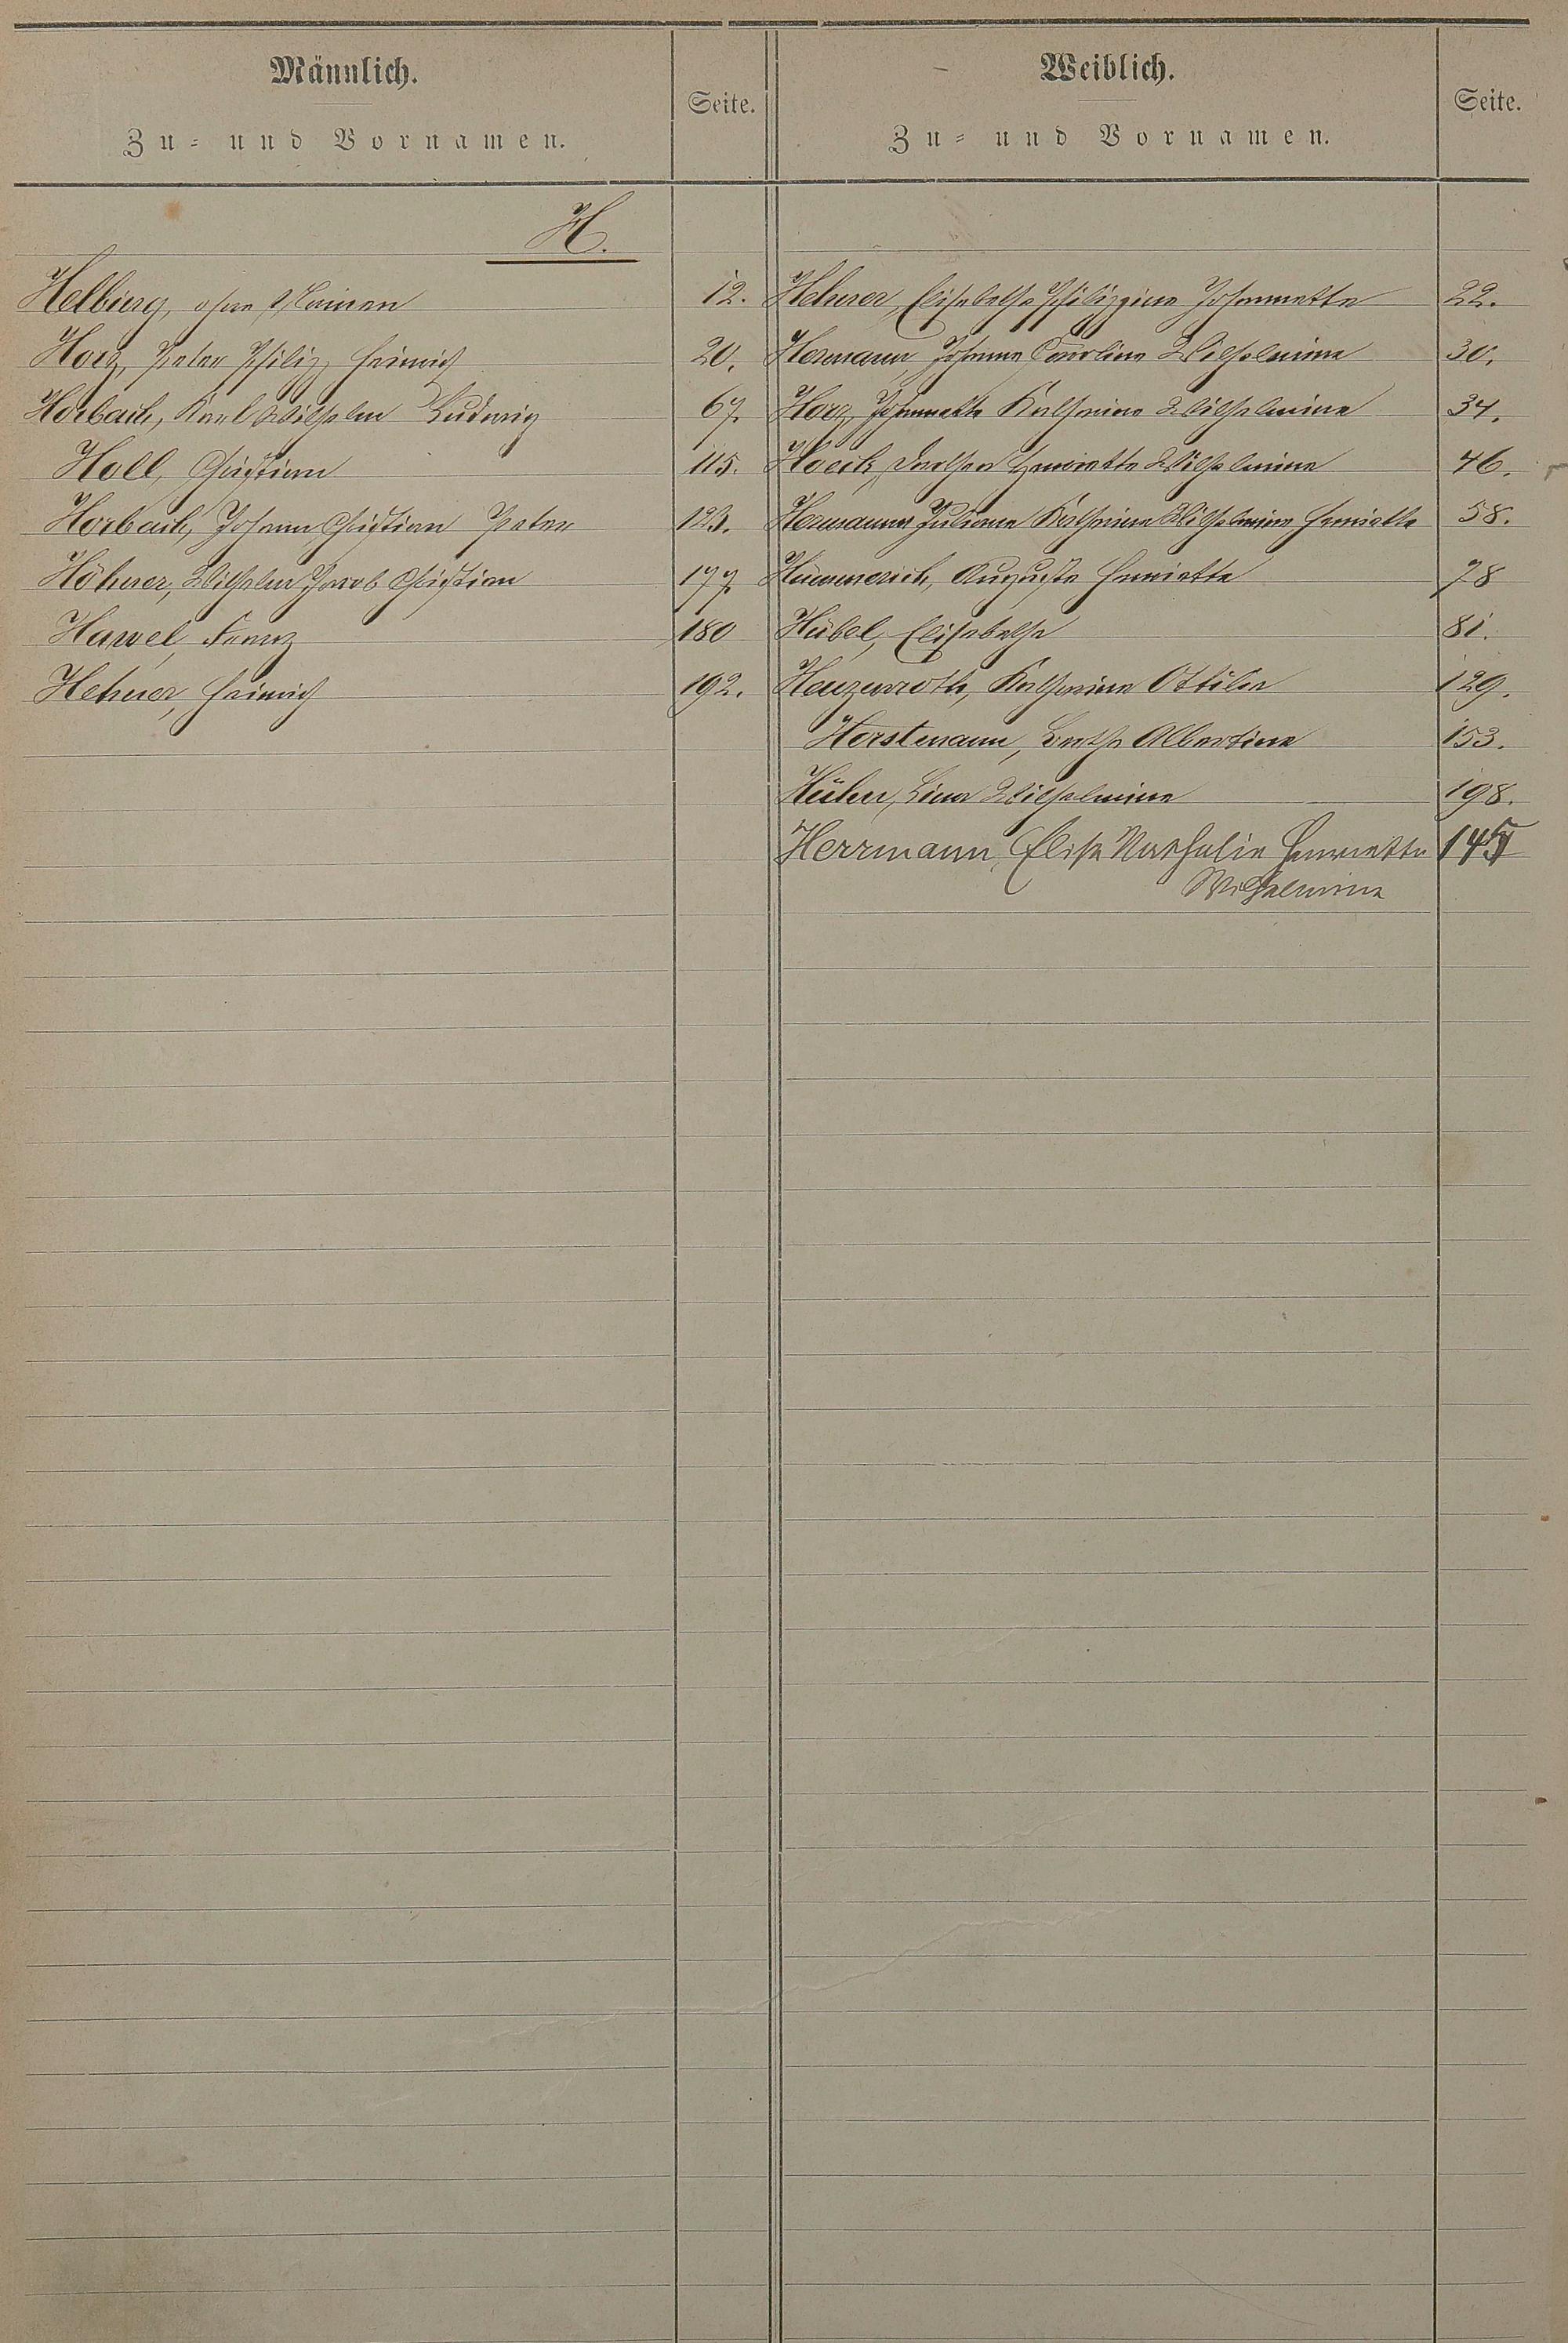 Männlich.
Zu- und Vornamen.
Seite.
Weiblich.
Zu- und Vornamen.
Seite.
H.
Helbing, ohne Namen 12.
Horz, Peter Philipp Heinrich 20.
Horbach, Karl Wilhelm Ludwig 67.
Holl, Christian 115.
Horbach, Johann Christian Peter 123.
Höhner, Wilhelm Jacob Christian 177.
Hawel, Franz 180
Hehner, Heinrich 192.
Hehner, Elisabethe Philippine Johannette 22.
Hermann, Johanna Caroline Wilhelmine 30.
Horz, Johannette Katharine Wilhelmine 34.
Henriette Wilhelmine 46.
Hermann, Juliane Katharine Wilhelmine Henriette 58.
Hümmerich, Auguste Henriette 78
Hübel, Elisabethe 81.
Henzenroth, Katharine Ottilie 129.
Horstmann, Bertha Albertine 153.
Hühn, Lina Wilhelmine 198.
Herrmann, Elise Nathalie Henriette
Wilhelmine